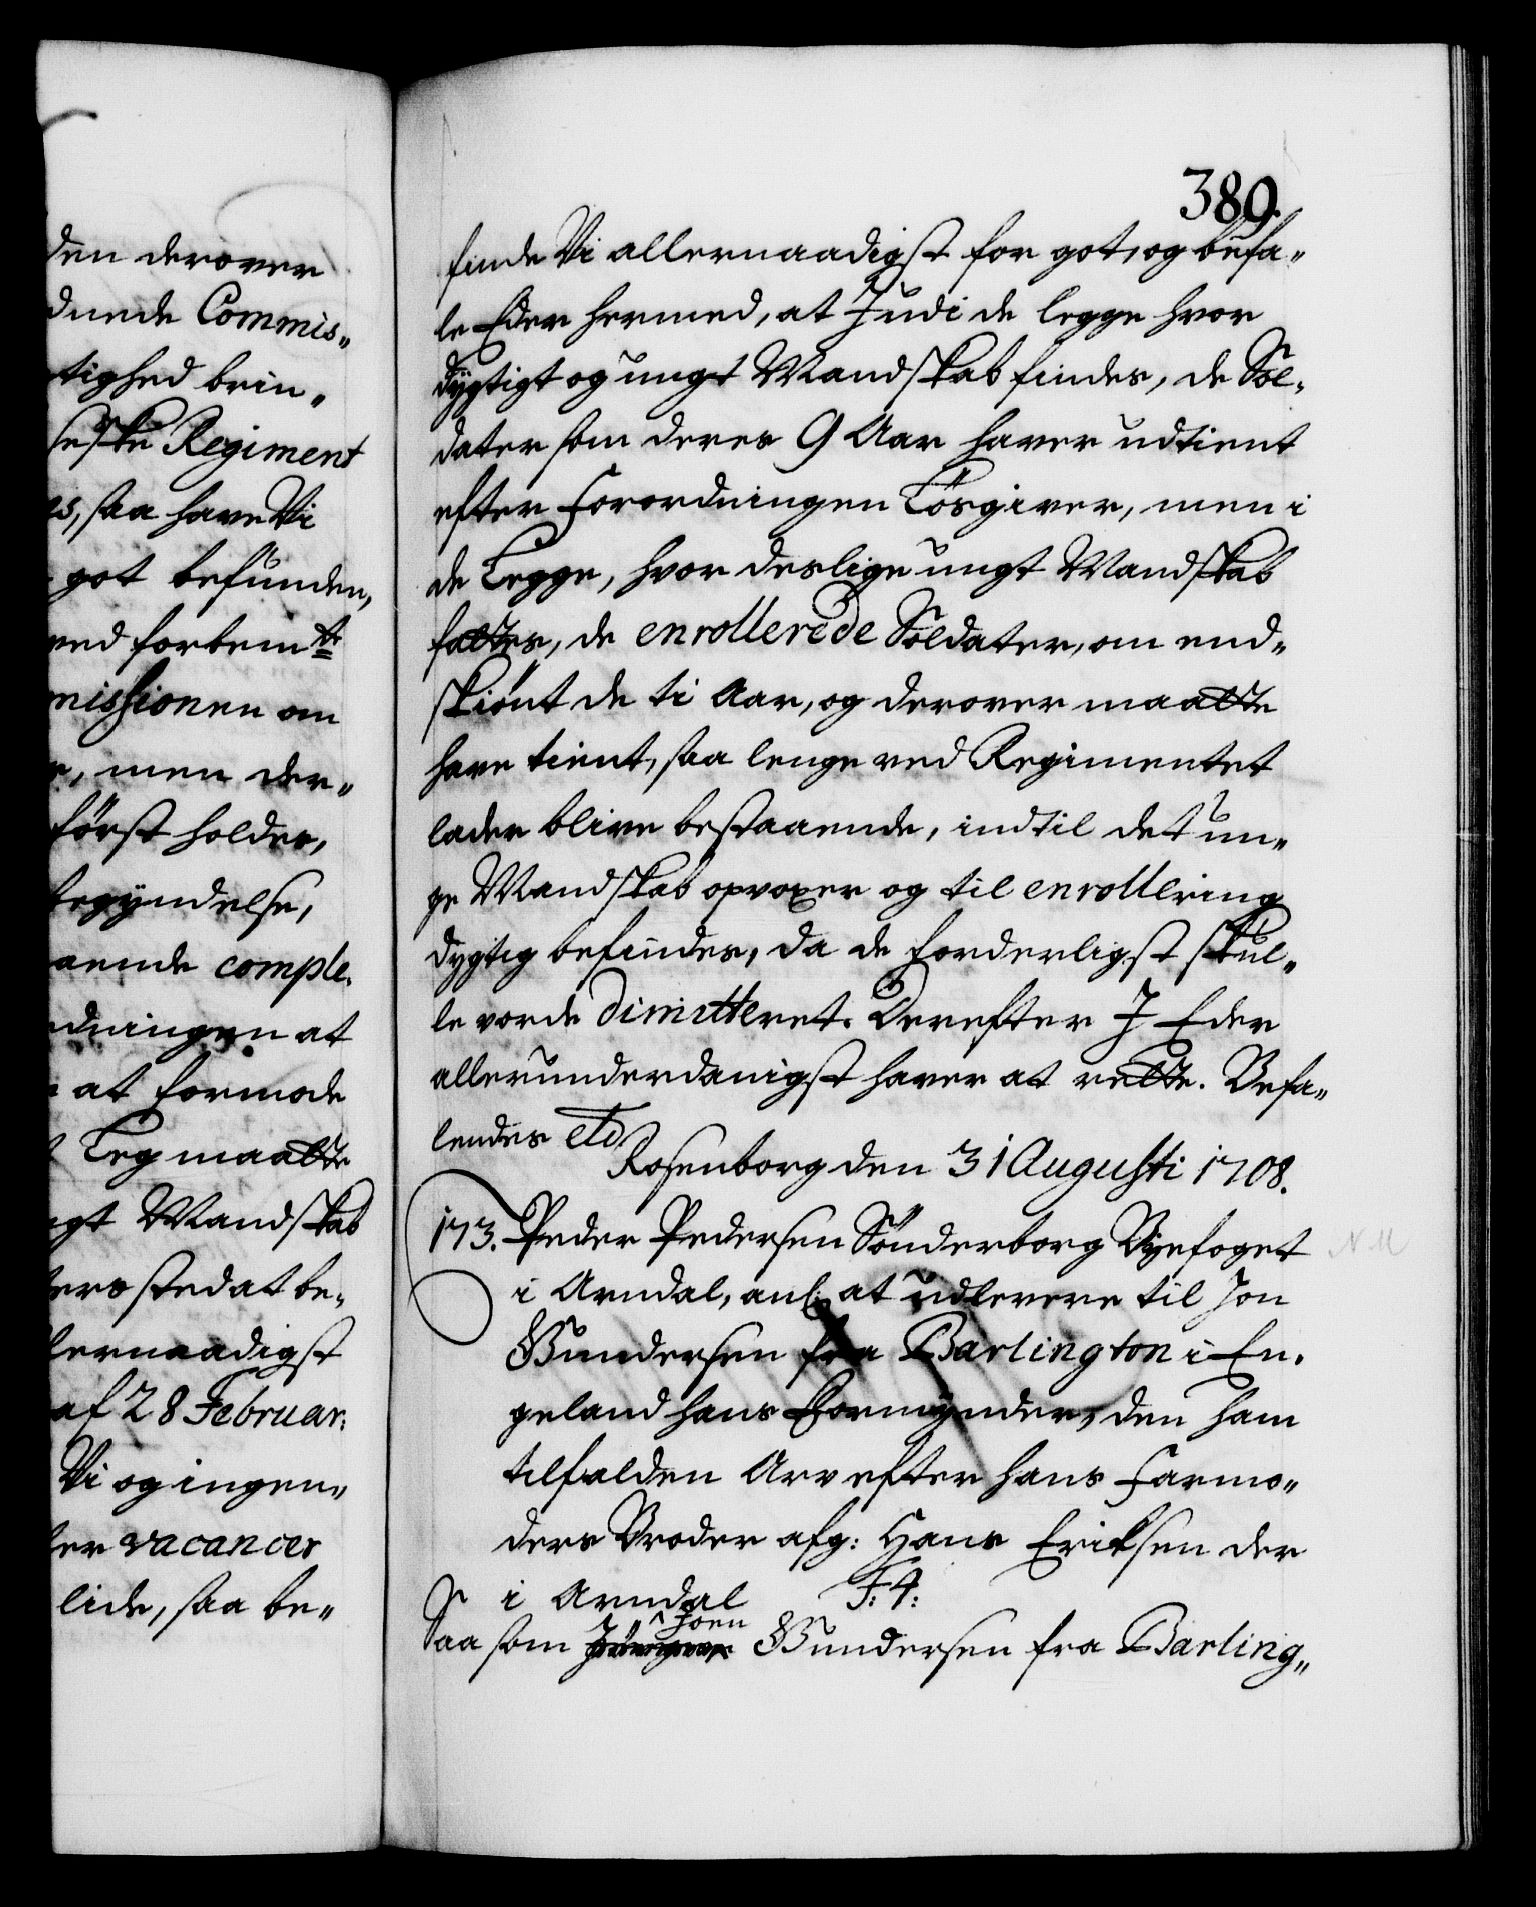 den derover
dnede Commis„
tighed brin„
seske Regiment
es, saa have Vi
got befunden,
med forbemte
missionen om
men der„
først holdes,
begyndelse,
aende comple„
dningen at
at formode
Leg maatte
ngt Mandskab
ers sted at be„
lernaadigst
af 28 Februar:
Vi og ingen„
ler vacancer
lide, saa be„
389.
finde Vi allernaadigst for got, og befa„
le Eder hermed, at I udi de legge hvor
dygtigt og ungt Mandskab findes, de Sol„
dater som deres 9 Aar haver udtient
efter Forordningen Løsgiver, men i
de Legge, hvor deslige ungt Mandskab
fattes, de enrollerede Soldater, om end„
skiønt de ti Aar, og derover maatte
have tient, saa lenge ved Regimentet
lader blive bestaaende, indtil det un„
ge Mandskab opvoxer og til enrollering
dygtig befindes, da de forderligst skul„
le vorde dimitteret. Derefter I Eder
allerunderdanigst haver at rette. Befa„
lendes etc
Rosenborg den 31 Augusti 1708.
173. Peder Pedersen Sønderborg Byefoget
i Arndal, anl: at udlevere til Jon
Gundersen fra Barlington i En„
geland hans Formynder, den ham
tilfalden Arv efter hans Farmo„
ders Broder afg: Hans Eriksen der
i Arndal F: 4:
Joen
Saa som Gundersen fra Barling„